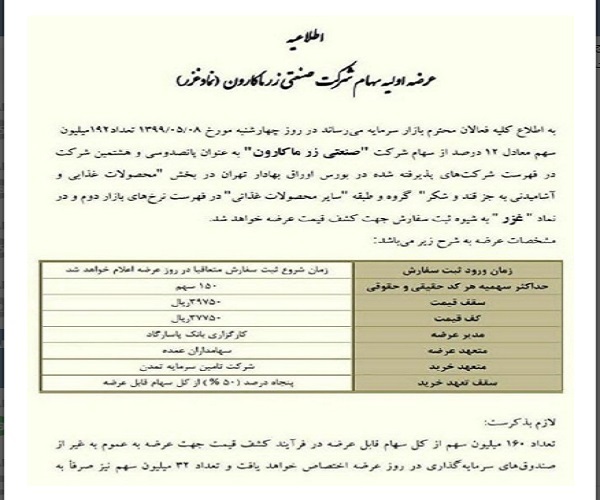 اطلاعیه
عرضه اولیه سهام شرکت صنعتی زر ماکارون (نماد غزر)
به اطلاع کلیه فعالان محترم بازار سرمایه می‌رساند در روز چهارشنبه مورخ ۱۳۹۹/۰۵/۰۸ تعداد ۱۹۲میلیون
سهم معادل ۱۲ درصد از سهام شرکت "صنعتی زر ماکارون" به عنوان پانصدوسی و هشتمین شرکت
در فهرست شرکت‌های پذیرفته شده در بورس اوراق بهادار تهران در بخش "محصولات غذایی و
آشامیدنی به جز قند و شکر" گروه و طبقه "سایر محصولات غذائی" در فهرست نرخ‌های بازار دوم و در
نماد " غزر " به شیوه ثبت سفارش جهت کشف قیمت عرضه خواهد شد.
مشخصات عرضه به شرح زیر می‌باشد:
زمان ورود ثبت سفارش زمان شروع ثبت سفارش متعاقبا در روز عرضه اعلام خواهد شد
حداکثر سهمیه هر کد حقیقی و حقوقی ۱۵۰ سهم
سقف قیمت ۳۹۷۵۰ریال
کف قیمت ۳۷۷۵۰ریال
مدیر عرضه کارگزاری بانک پاسارگاد
متعهد عرضه سهامداران عمده
متعهد خرید شرکت تامین سرمایه تمدن
سقف تعهد خرید پنجاه درصد (۵۰ %) از کل سهام قابل عرضه
لازم بذکرست:
تعداد ۱۶۰ میلیون سهم از کل سهام قابل عرضه در فرآیند کشف قیمت جهت عرضه به عموم به غیر از
صندوق‌های سرمایه‌گذاری در روز عرضه اختصاص خواهد یافت و تعداد ۳۲ میلیون سهم نیز صرفاً به